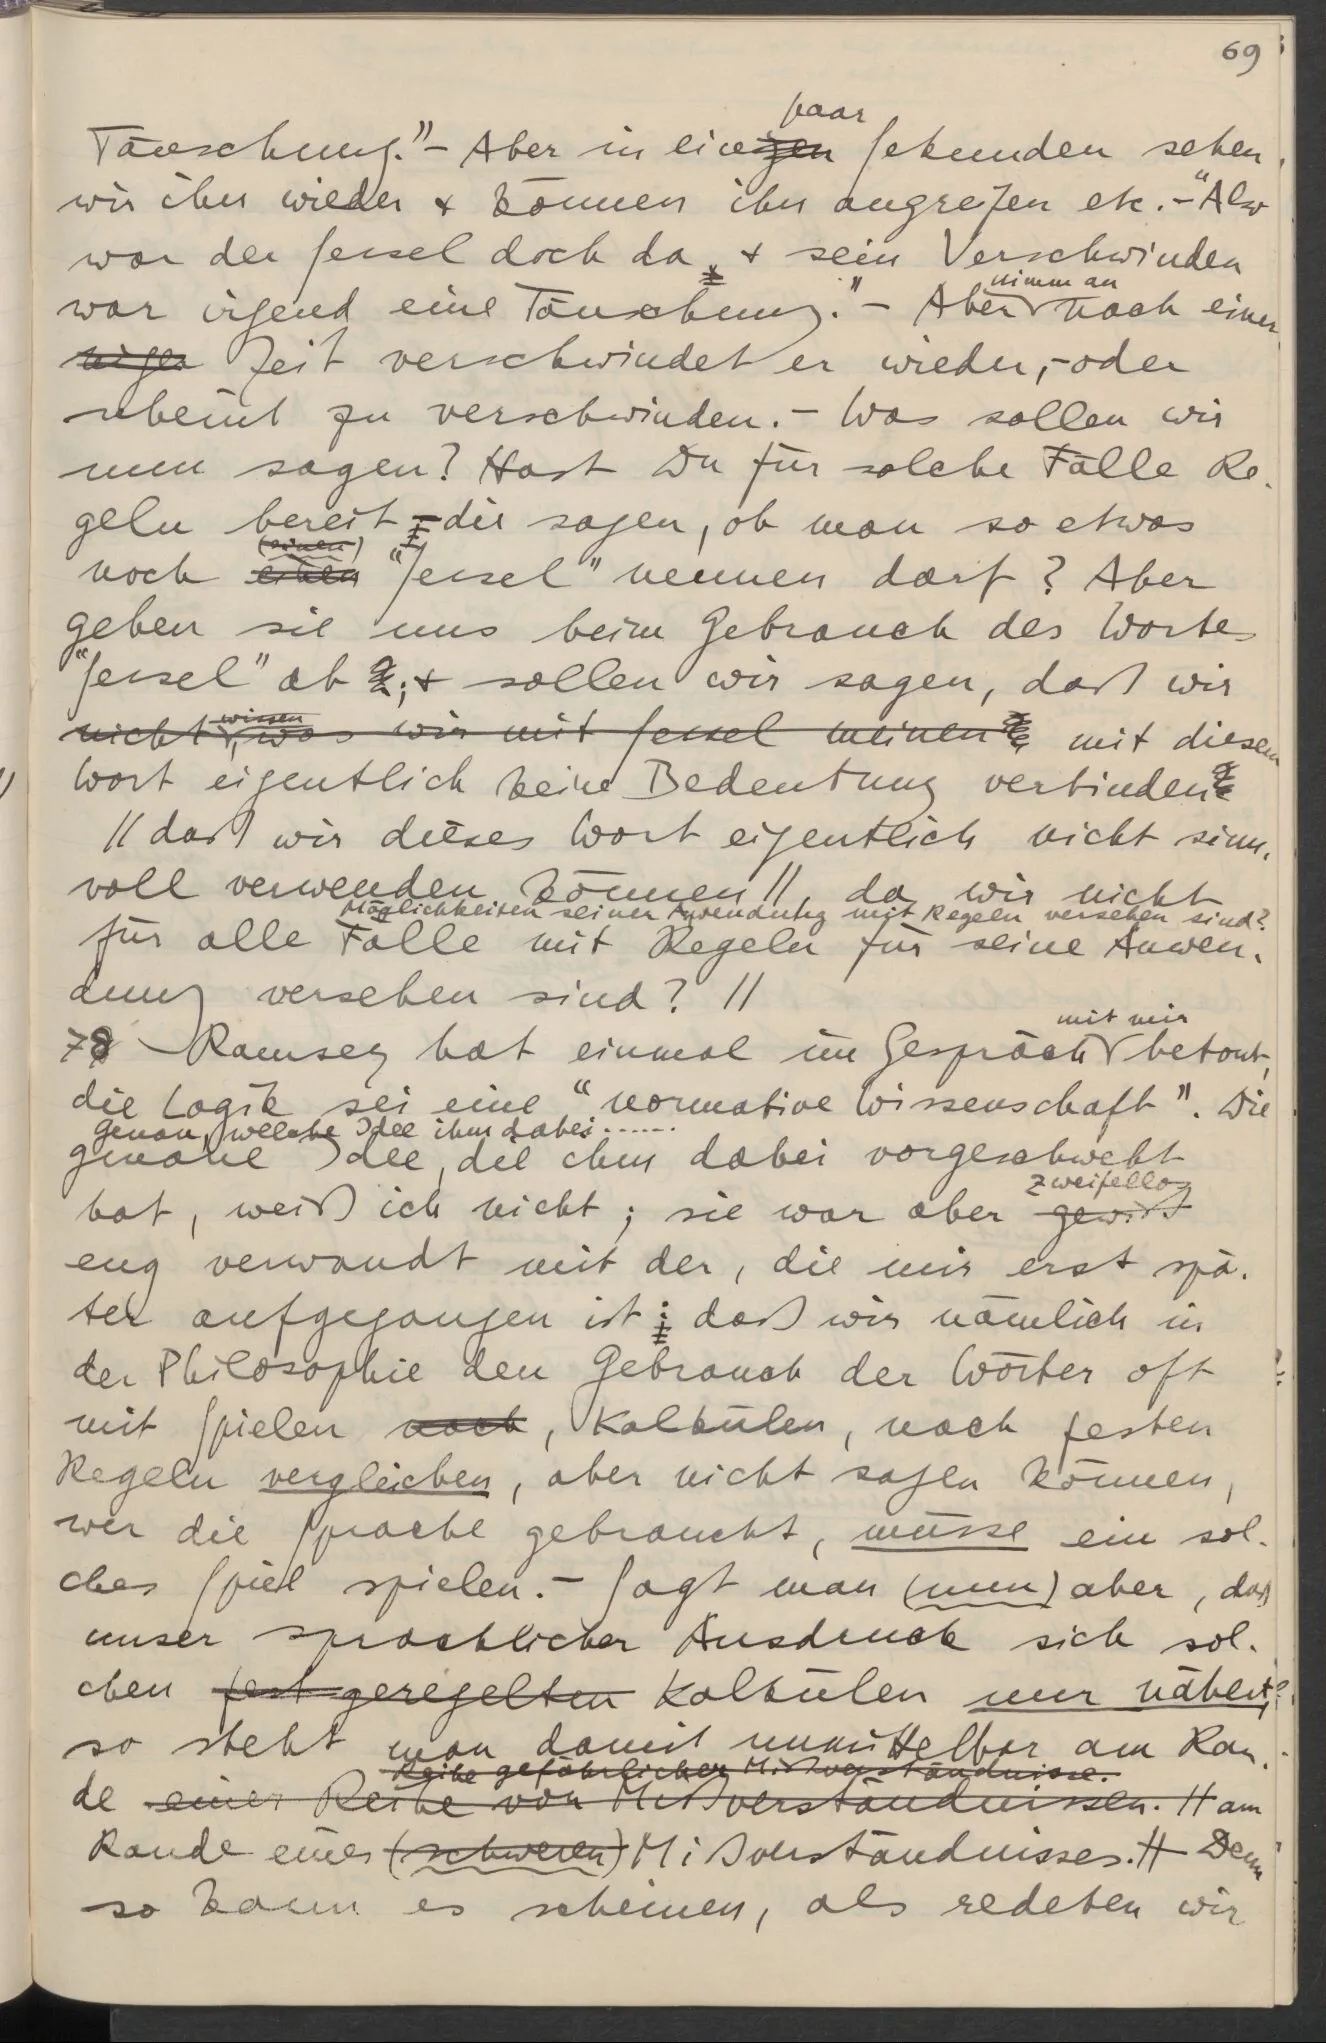 69
paar
Täuschung." – Aber in einigen Sekunden sehen
wir ihn wieder & können ihn angreifen etc. – "Also
war der Sessel doch da & sein Verschwinden
nimm an
war irgend eine Täuschung." – Aber nach einer
niger Zeit verschwindet er wieder, – oder
scheint zu verschwinden. – Was sollen wir
nun sagen? Hast Du für solche Fälle Re-
geln bereit – die sagen, ob man so etwas
(einen)
noch einen "Sessel" nennen darf? Aber
gehen sie uns beim Gebrauch des Wortes
"Sessel" ab; & sollen wir sagen, daß wir
wissen
nicht, was wir mit Sessel meinen mit diesem
Wort eigentlich keine Bedeutung verbinden
// daß wir dieses Wort eigentlich nicht sinn-
voll verwenden können // da wir nicht
Möglichkeiten seiner Anwendung mit Regeln versehen sind?
für alle Fälle mit Regeln für seine Anwen-
dung versehen sind? //
78 Ramsey hat einmal im Gespräch betont,
mit mir
die Logik sei eine "normative Wissenschaft". Die
Genau, welche Idee ihm dabei ......
genaue Idee, die ihm dabei vorgeschwebt
zweifellos
hat, weiß ich nicht; sie war aber gewiß
eng verwandt mit der, die mir erst spä-
ter aufgegangen ist: daß wir nämlich in
der Philosophie den Gebrauch der Wörter oft
mit Spielen nach, Kalkülen, nach festen
Regeln vergleichen, aber nicht sagen können,
wer die Sprache gebraucht, müsse ein sol-
ches Spiel spielen. – Sagt man (nun) aber, daß
unser sprachlicher Ausdruck sich sol-
chen fest geregelten Kalkülen nur nähert,
so steht man damit unmittelbar am Ran-
Reihe gefährlicher Mißverständnisse.
de einer Reihe von Mißverständnissen. // am
Rande eines (schweren) Mißverständnisses. // Denn
so kann es scheinen, als redeten wir